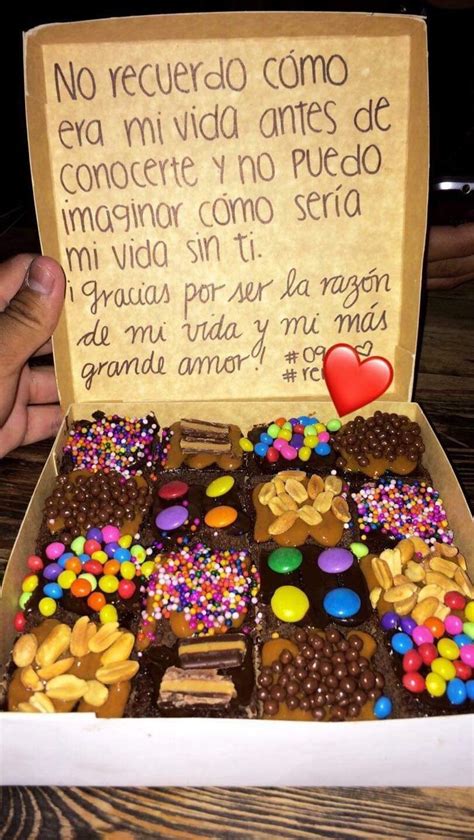 No recuerdo cómo
era mi vida antes de
conocerte y no puedo
imaginar cómo sería
mi vida sin ti.
¡Gracias por ser la razón
de mi vida y mi más
grande amor!